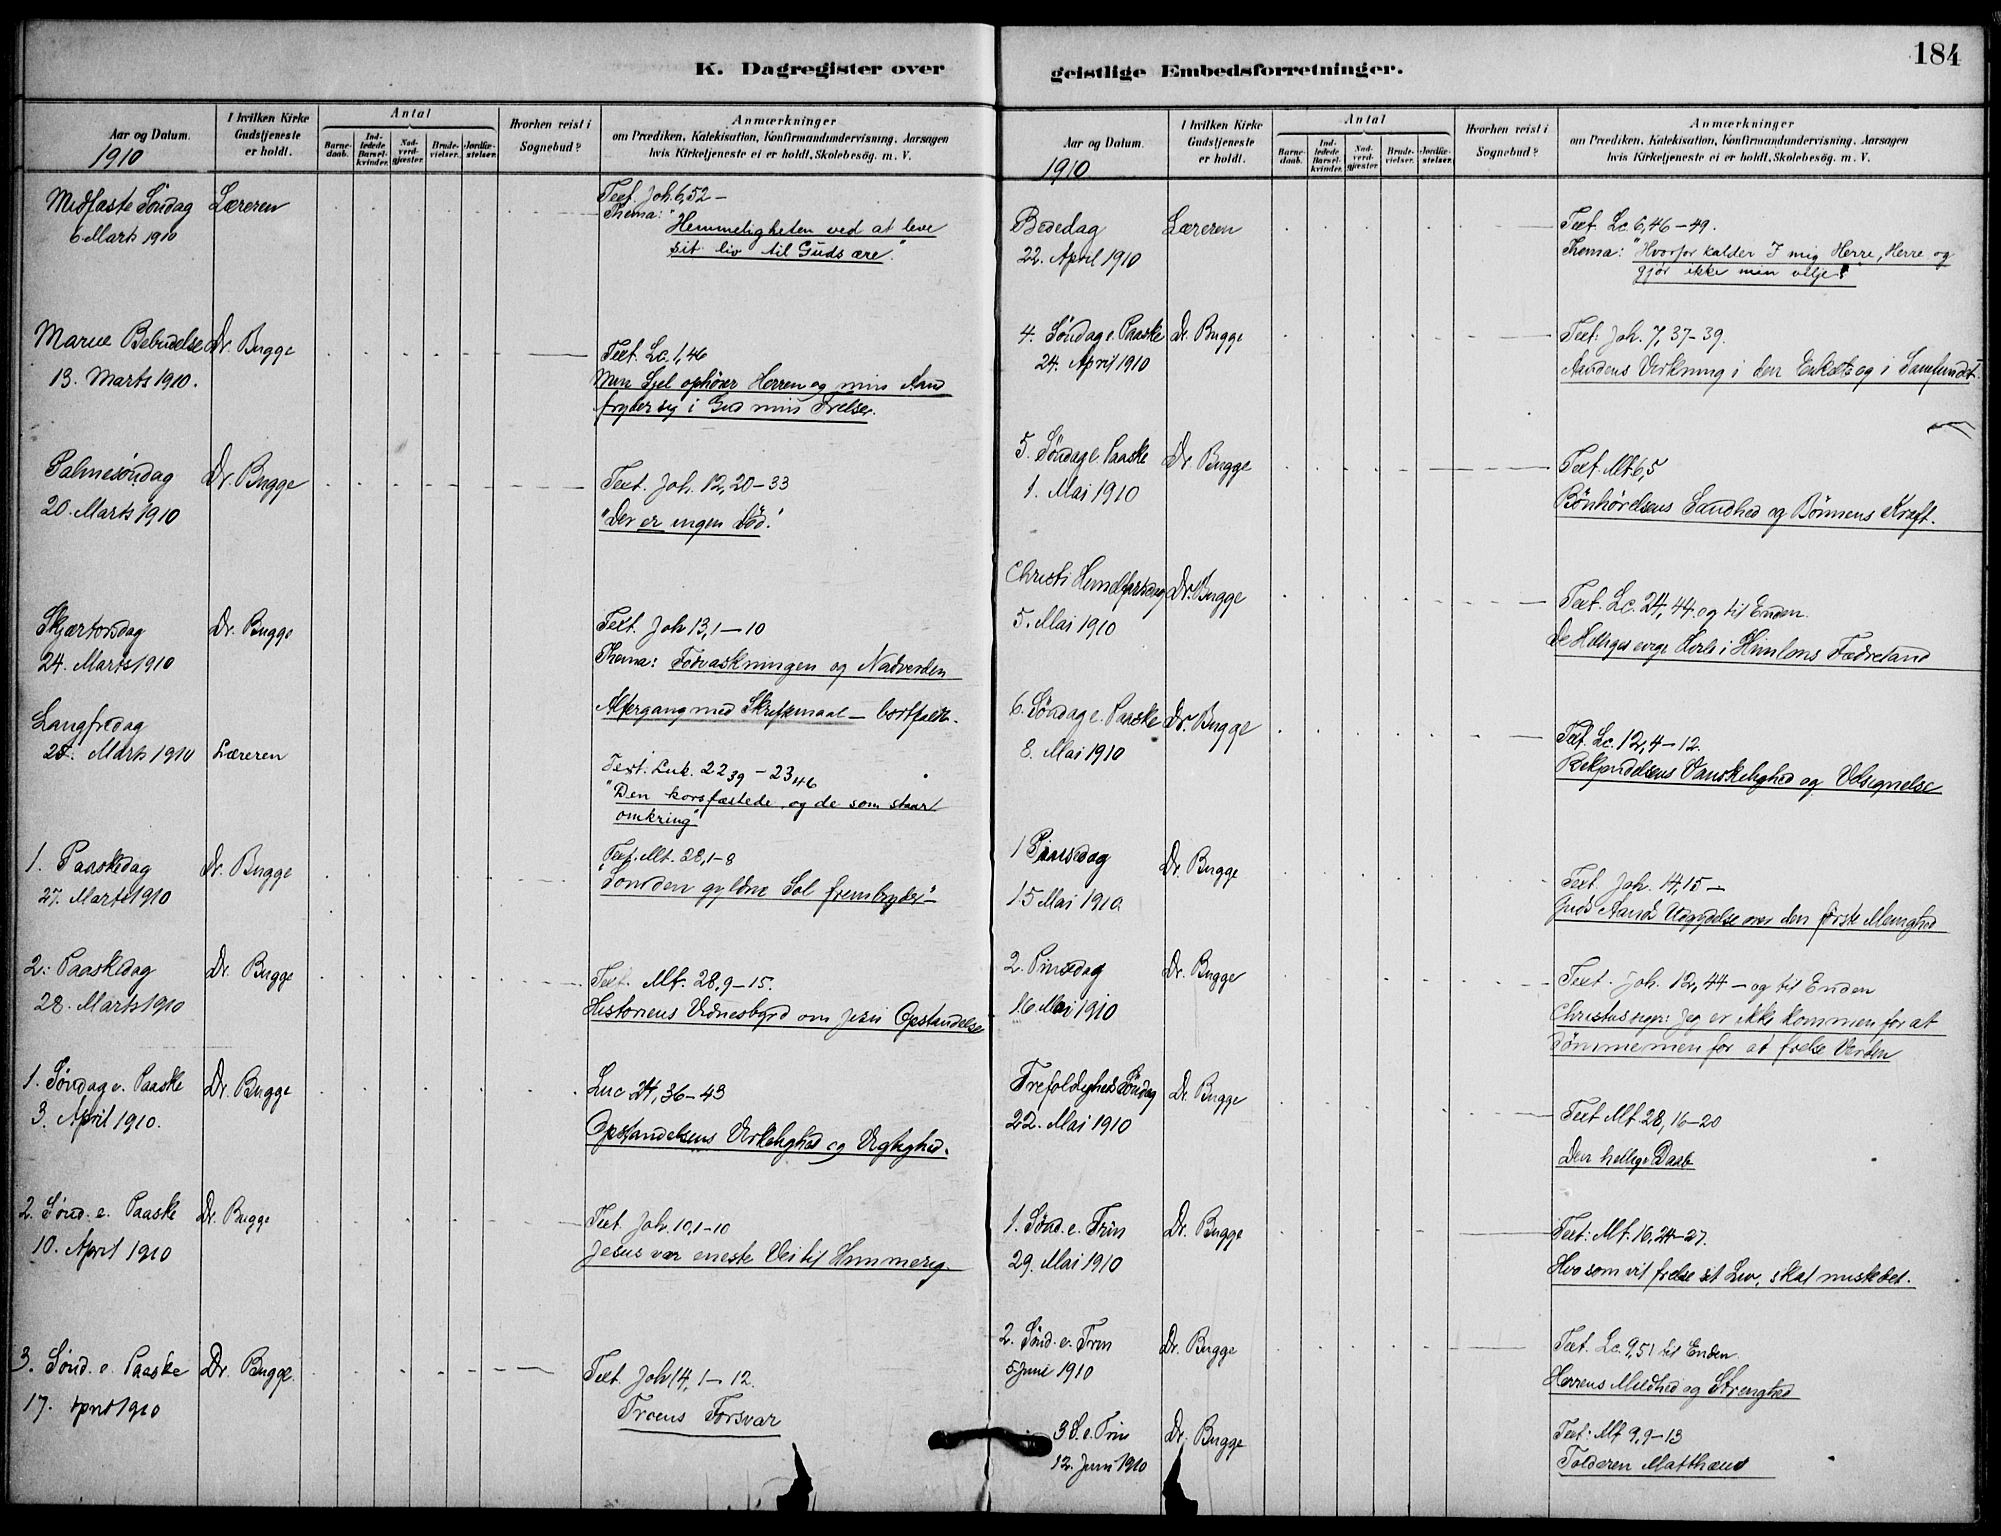 184
K. Dagregister over
Aar og Datum.
1910
I hvilken Kirke
Gudstjeneste
er holdt.
Antal
Barne-
daab.
Ind-
ledede
Barsel-
kvinder.
Nad-
verd-
gjæster.
Brude-
vielser.
Jordfæ-
stelser.
Hvorhen reist i
Sognebud?
Anmærkninger
om Prædiken, Katekisation, Konfirmandundervisning, Aarsagen
hvis Kirketjeneste ei er holdt, Skolebesøg. m. V.
Midfaste Søndag Læreren
6 Marts 1910
Text. Joh. 6,52 –
Thema: "Hemmeligheten ved at leve
sit liv til Guds ære".
Mariæ Bebudelse Dr. Bugge
13. Marts 1910.
Text. Lc. 1,46
Min Sjel ophøier Herren og min Aand
fryder sig i Gud min Frelser.
Palmesøndag Dr. Bugge
20. Marts 1910
Text. Joh. 12, 20–33
"Der er ingen Død."
Skjærtorsdag Dr. Bugge
24. Marts 1910
Text. Joh 13, 1–10
Thema: Fodvaskningen og Nadverden
Altergang med Skriftemaal – bortfaldt.
Langfredag
25. Marts 1910 Læreren
Text. Luk. 22 39 – 23 46
"Den korsfæstede og de som staar
omkring"
1. Paaskedag Dr. Bugge
27. Marts 1910
Text. Mt. 28, 1–8
"Som den gyldne Sol frembryder"
2. Paaskedag Dr. Bugge
28. Marts 1910
Text. Mt. 28, 9–15.
Historiens Vidnesbyrd om Jesu Opstandelse
1. Søndag e. Paaske Dr. Bugge
3. April 1910.
Luc 24, 36–43
Opstandelsens Virkelighed og Vigtighed.
2. Sønd. e. Paaske Dr. Bugge
10. April 1910
Text. Joh. 10, 1–10
Jesus vor eneste Vei til Himmerig
3. Sønd. e. Paaske Dr. Bugge.
17. April 1910
Text. Joh 14, 1–12.
Troens Forsvar
geistlige Embedsforretninger.
Aar og Datum.
1910
I hvilken Kirke
Gudstjeneste
er holdt.
Antal
Barne-
daab.
Ind-
ledede
Barsel-
kvinder.
Nad-
verd-
gjæster.
Brude-
vielser.
Jordfæ-
stelser.
Hvorhen reist i
Sognebud?
Anmærkninger
om Prædiken, Katekisation, Konfirmandundervisning, Aarsagen
hvis Kirketjeneste ei er holdt, Skolebesøg. m. V.
Bededag Læreren
22. April 1910
Text. Lc. 6, 46–49.
Thema: "Hvorfor kalder I mig Herre, Herre og
gjør ikke min vilje?
4. Søndag e. Paaske Dr. Bugge
24. April 1910
Text: Joh. 7, 37–39.
Aandens Virkning i den Enkelte og i Samfundet.
5. Søndag e. Paaske Dr. Bugge
1. Mai 1910
Text. Mt 6,5
Bønhørelsens Sandhed og Bønnens Kraft.
Christi Himelfartsdag Dr. Bugge
5. Mai 1910
Text. Lc. 24, 44 og til Enden.
De Helliges evige i Himlens Fædreland
6. Søndag e. Paaske Dr. Bugge
8. Mai 1910
Text. Lc. 12, 4–12.
Bekjendelsens Vanskelighed og Velsignelse
1 Pinsedag Dr. Bugge
15 Mai 1910
Text. Joh. 14,15 –
Guds Aands Udgydelse over den første Menighed
2. Pinsedag Dr. Bugge
16. Mai 1910
Text. Joh. 12, 44 – og til Enden
Christus siger: Jeg er ikke kommen for at
dømme men for at frelse Verden
Trefoldigheds Søndag Dr. Bugge
22. Mai 1910
Text Mt. 28, 16–20
Den hellige Daab
1. Sønd. e. Trin Dr. Bugge
29. Mai 1910
Text: Mt. 16, 24–27.
Hvo som vil frelse sit Liv, skal miste det.
2. Sønd. e. Trin Dr. Bugge
5 Juni 1910
Text. Lc. 9, 51 til Enden.
Herrens Mildhed og Strenghed
3 S. e. Trin Dr. Bugge
12. Juni 1910
Text: Mt 9, 9–13
Tolderen Matthæus